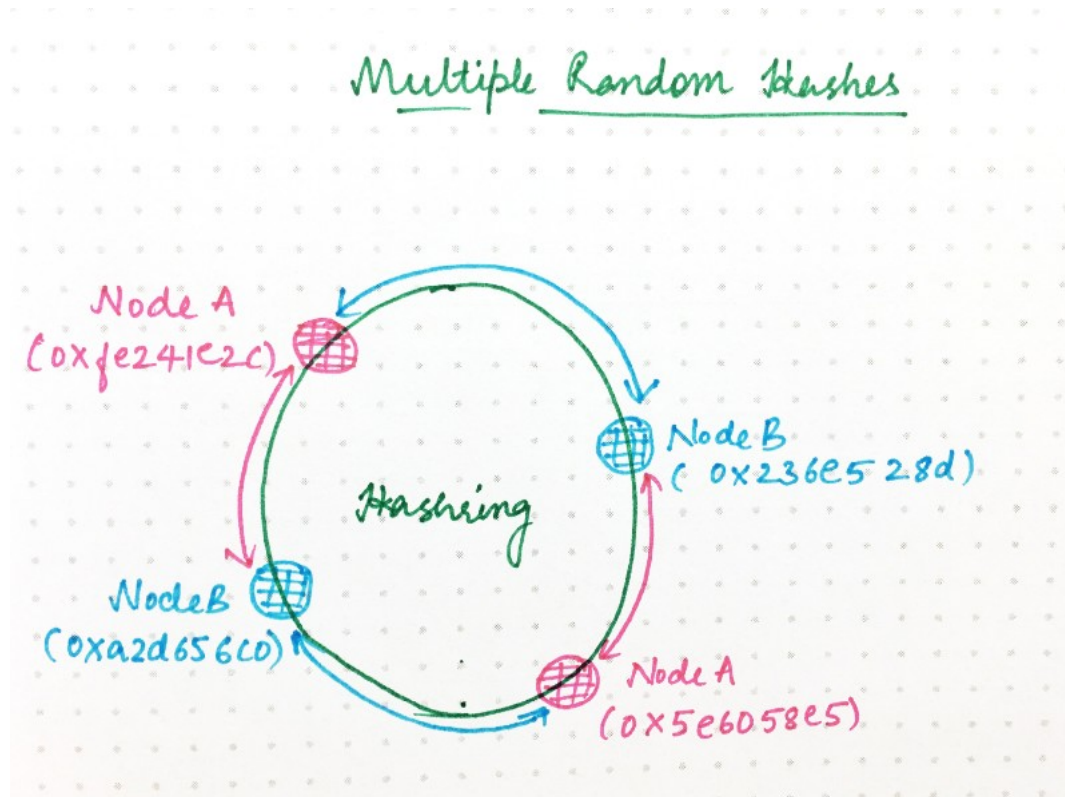 Multiple Random Hashes
Node A
(0xfe241e2c)
Node B
(0x236e528d)
Hashring
Node B
(0xa2d656c0)
Node A
(0x5e6058e5)